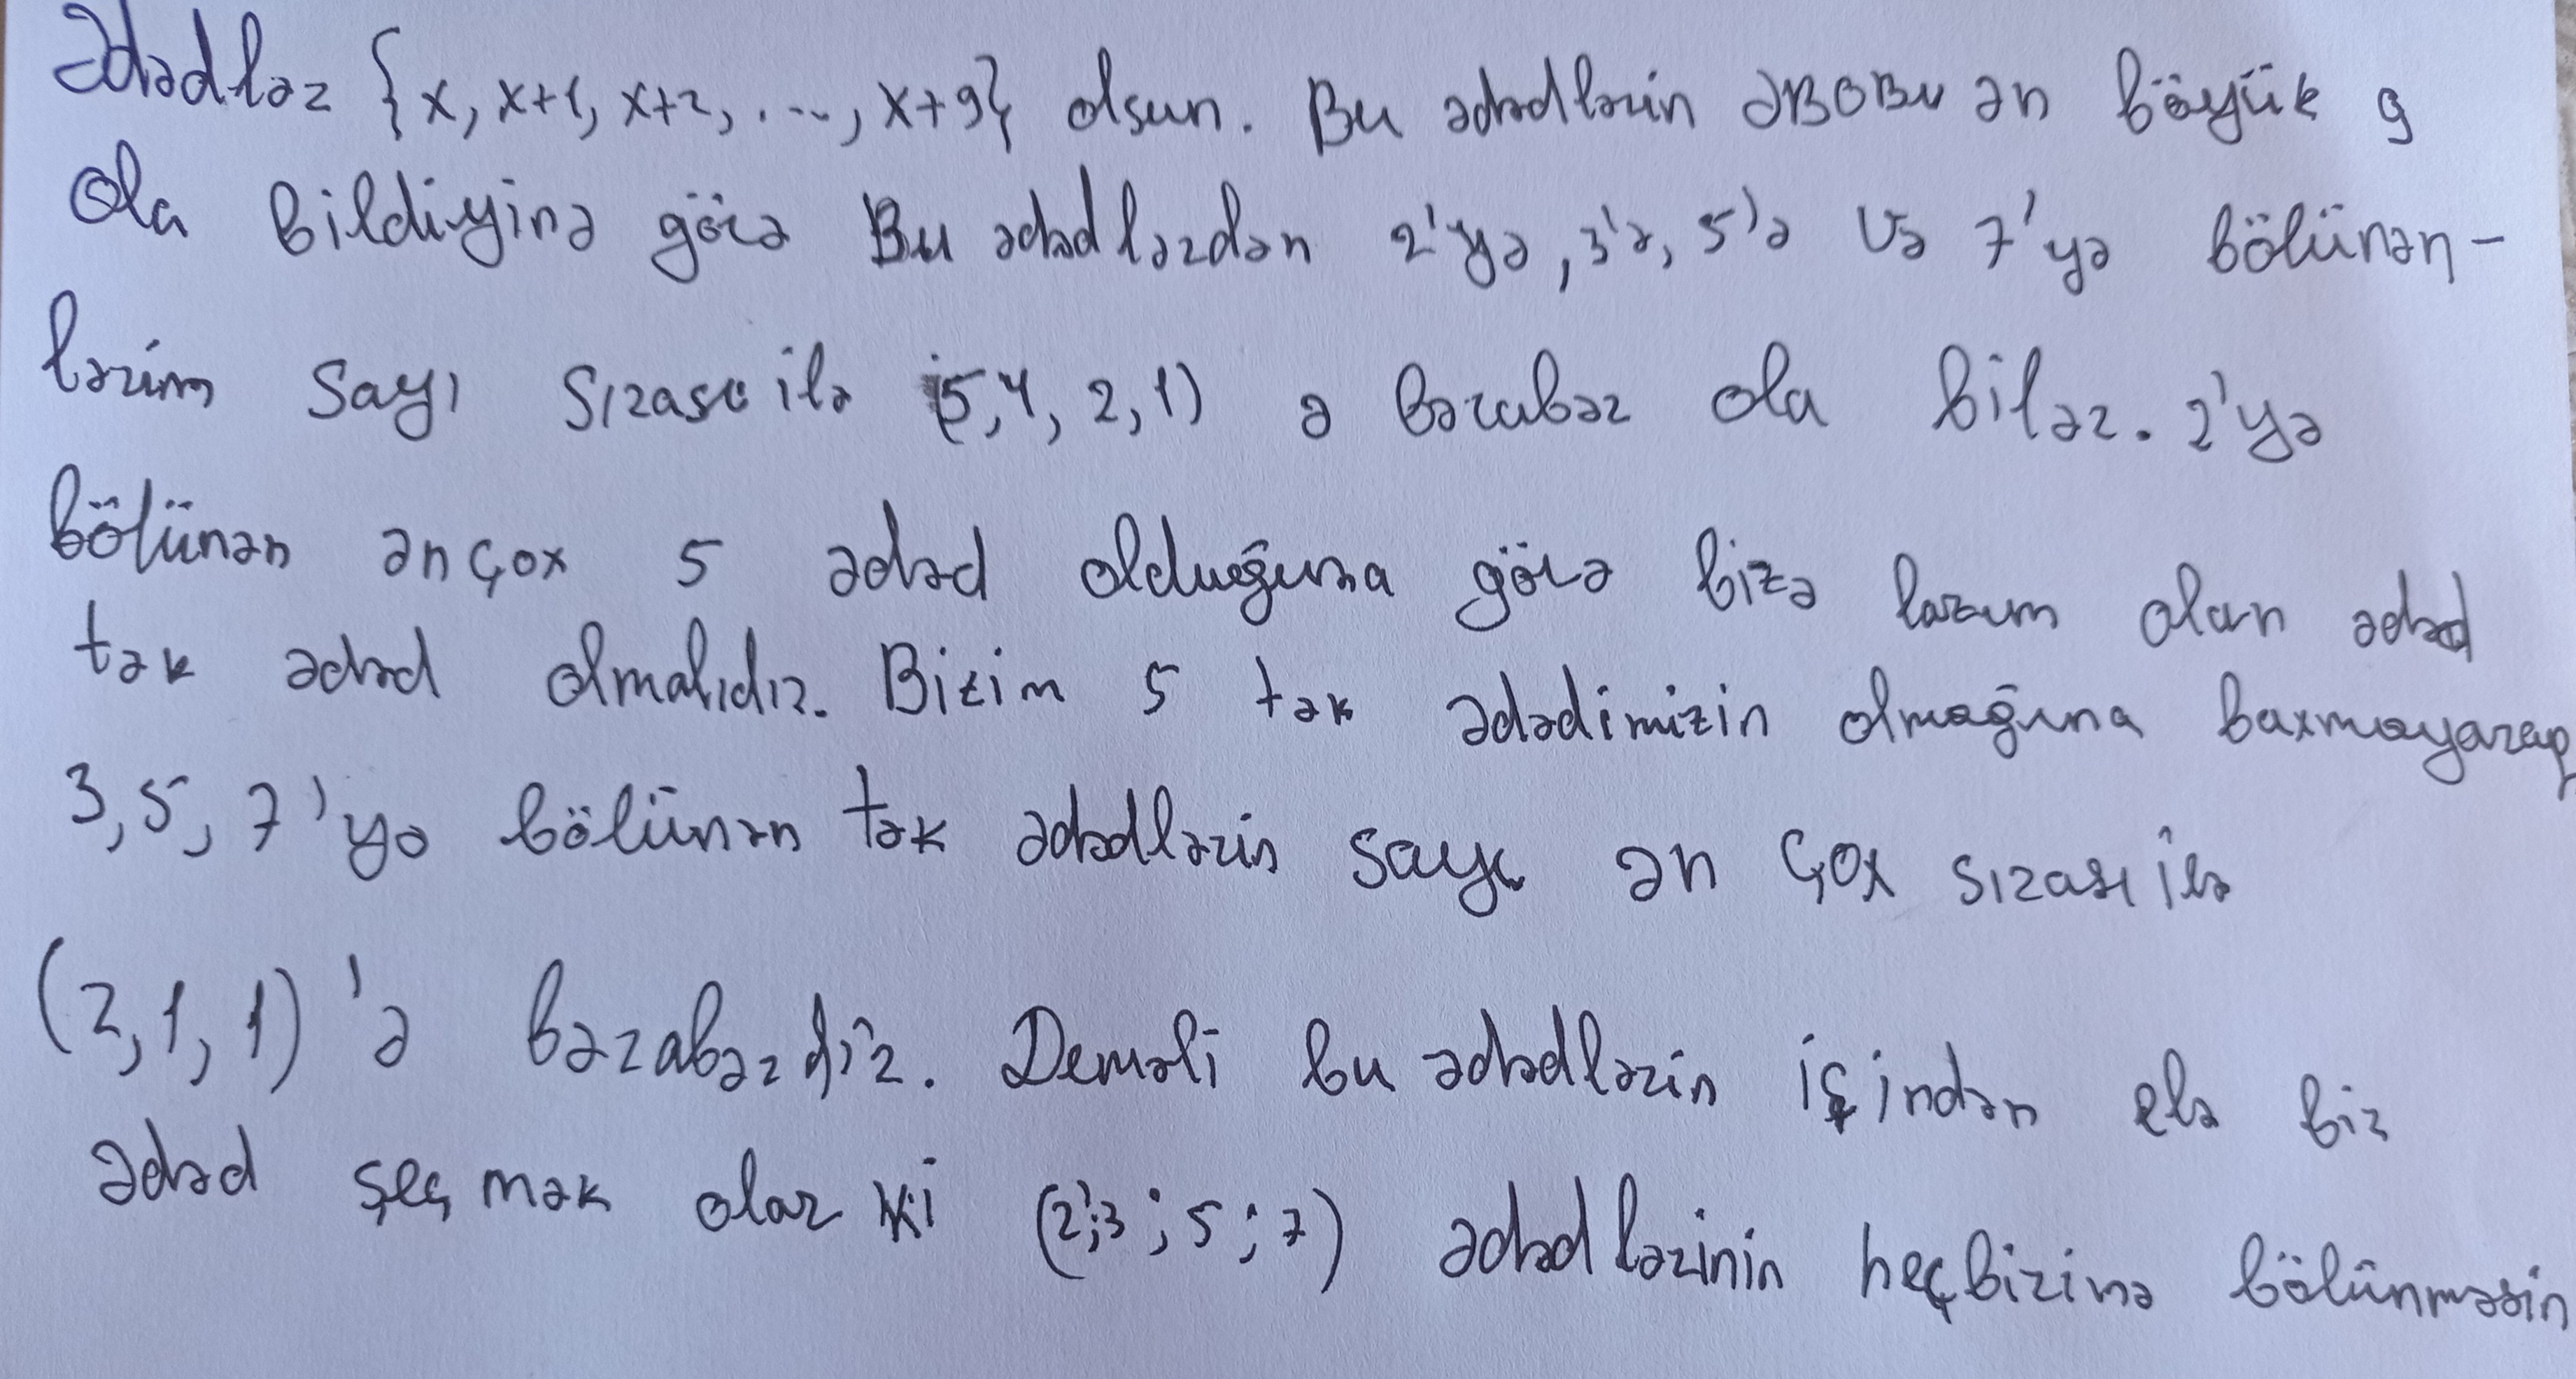 Ədədlər {x, x+1, x+2, ..., x+9} olsun. Bu ədədlərin ƏBOBu ən böyük 9
Ola bildiyinə görə Bu ədədlərdən 2'yə, 3'ə, 5'ə və 7'yə bölünən-
lərin sayı sırası ilə (5,4, 2, 1) ə bərabər ola bilər. 2'yə
bölünən ən çox 5 ədəd olduğuna görə bizə lazım olan ədəd
tək ədəd olmalıdır. Bizim 5 tək ədədimizin olmağına baxmayaraq
3, 5, 7'yə bölünən tək ədədlərin sayı ən çox sırası ilə
(2, 1, 1)'ə bərabərdir. Deməli bu ədədlərin içindən elə bir
ədəd seçmək olar ki (2;3;5;7) ədədlərinin heçbirinə bölünməsin